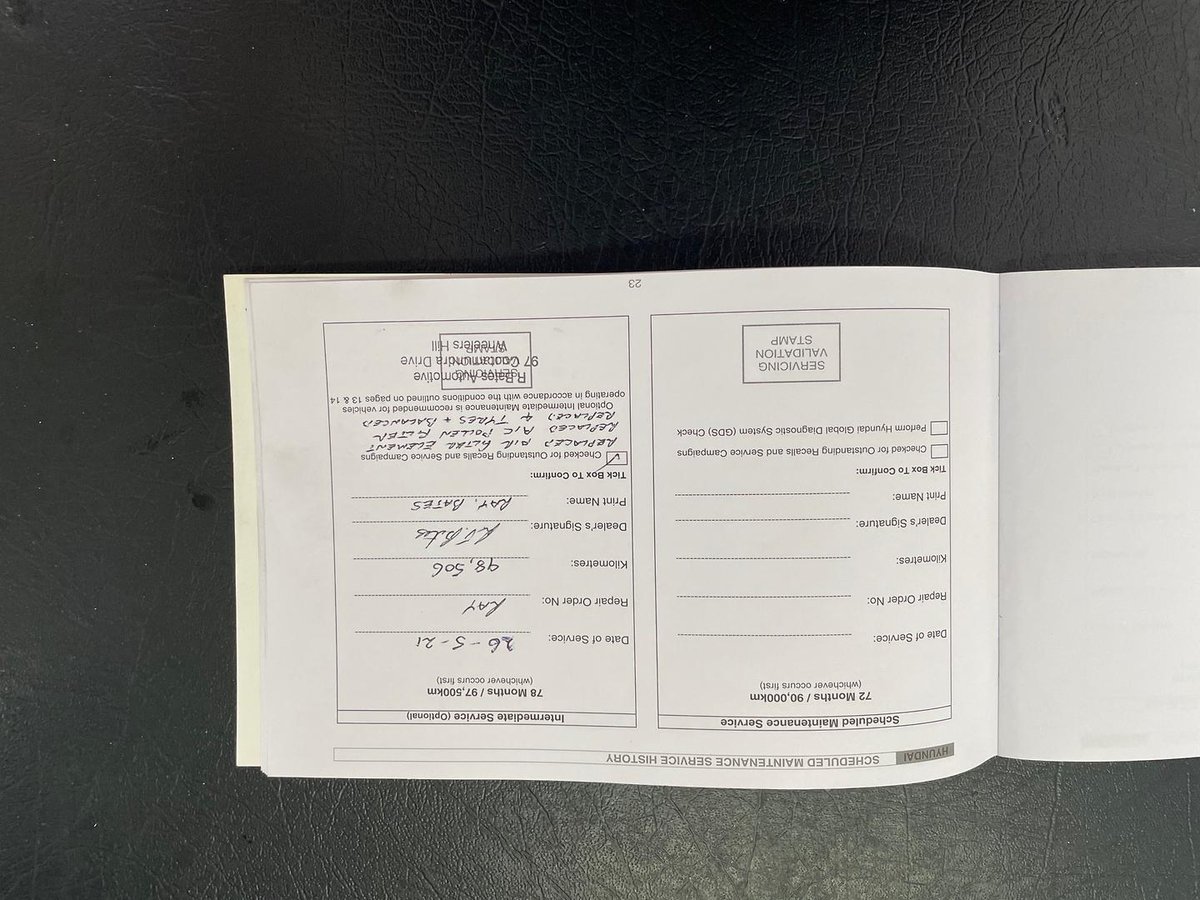 HYUNDAI SCHEDULED MAINTENANCE SERVICE HISTORY
Scheduled Maintenance Service
72 Months / 90,000km
(whichever occurs first)
Date of Service:
Repair Order No:
Kilometres:
Dealer's Signature:
Print Name:
Tick Box To Confirm:
Checked for Outstanding Recalls and Service Campaigns
Perform Hyundai Global Diagnostic System (GDS) Check
SERVICING
VALIDATION
STAMP
Intermediate Service (Optional)
78 Months / 97,500km
(whichever occurs first)
Date of Service: 26-5-21
Repair Order No: RAY
Kilometres: 98,506
Dealer's Signature: R.J. Bates
Print Name: RAY. BATES
Tick Box To Confirm:
Checked for Outstanding Recalls and Service Campaigns
REPLACED AIR FILTER ELEMENT
REPLACED A/C POLLEN FILTER
REPLACED 4 TYRES + BALANCED
Optional Intermediate Maintenance is recommended for vehicles
operating in accordance with the conditions outlined on pages 13 & 14
R Bates Automotive
97 Cootamundra Drive
Wheelers Hill
SERVICING
VALIDATION
STAMP
23